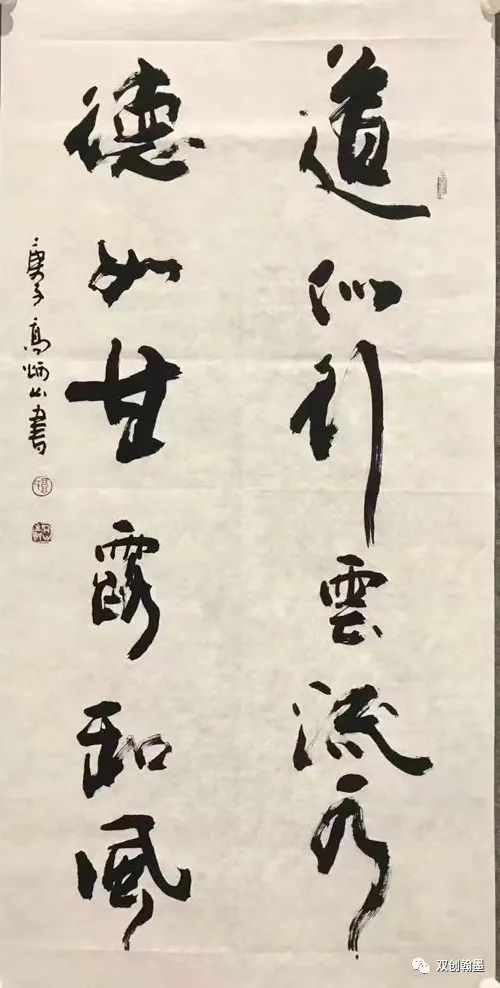 道似行雲流水
德如甘露和風
庚子高炳山書
双创翰墨